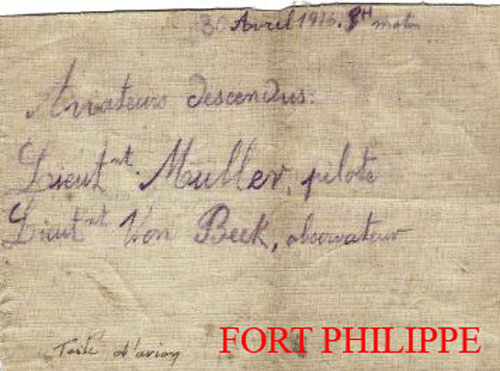 30 Avril 1916. 8H matin
Aviateurs descendus:
Lieutnt Muller, pilote
Lieutnt Von Beek, observateur
Toile d'avion
FORT PHILIPPE